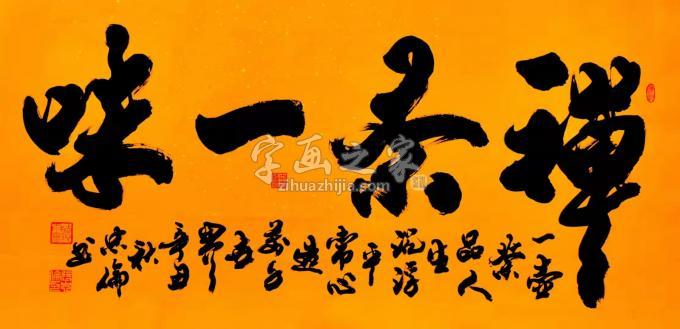 禪茶一味
一壶
茶
品人
生
沉浮
平
常心
造
萬千
世
界
辛丑
秋
忠倫
书
字画之家
zihuazhijia.com